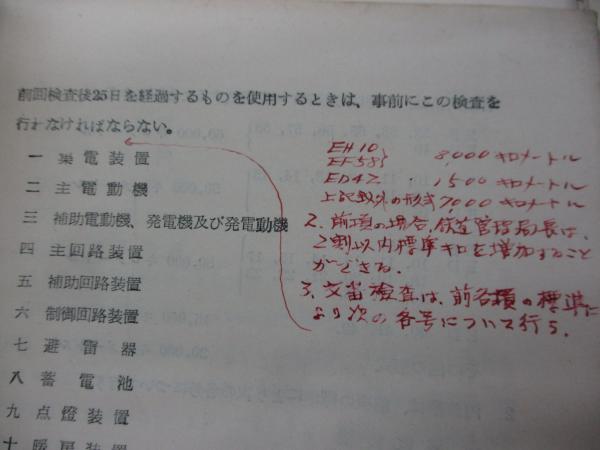 前回検査後25日を経過するものを使用するときは、事前にこの検査を
行わなければならない。
一 集電装置
二 主電動機
三 補助電動機、発電機及び発電動機
四 主回路装置
五 補助回路装置
六 制御回路装置
七 避雷器
八 蓄電池
九 点燈装置
十 暖房装置
EH10
EF58} 8,000キロメートル
ED42 1,500キロメートル
上記以外の形式 7,000キロメートル
2. 前項の場合、鉄道管理局長は、
2割以内標準キロを増加すること
ができる。
3. 交番検査は、前各項の標準に
より次の各号について行う。